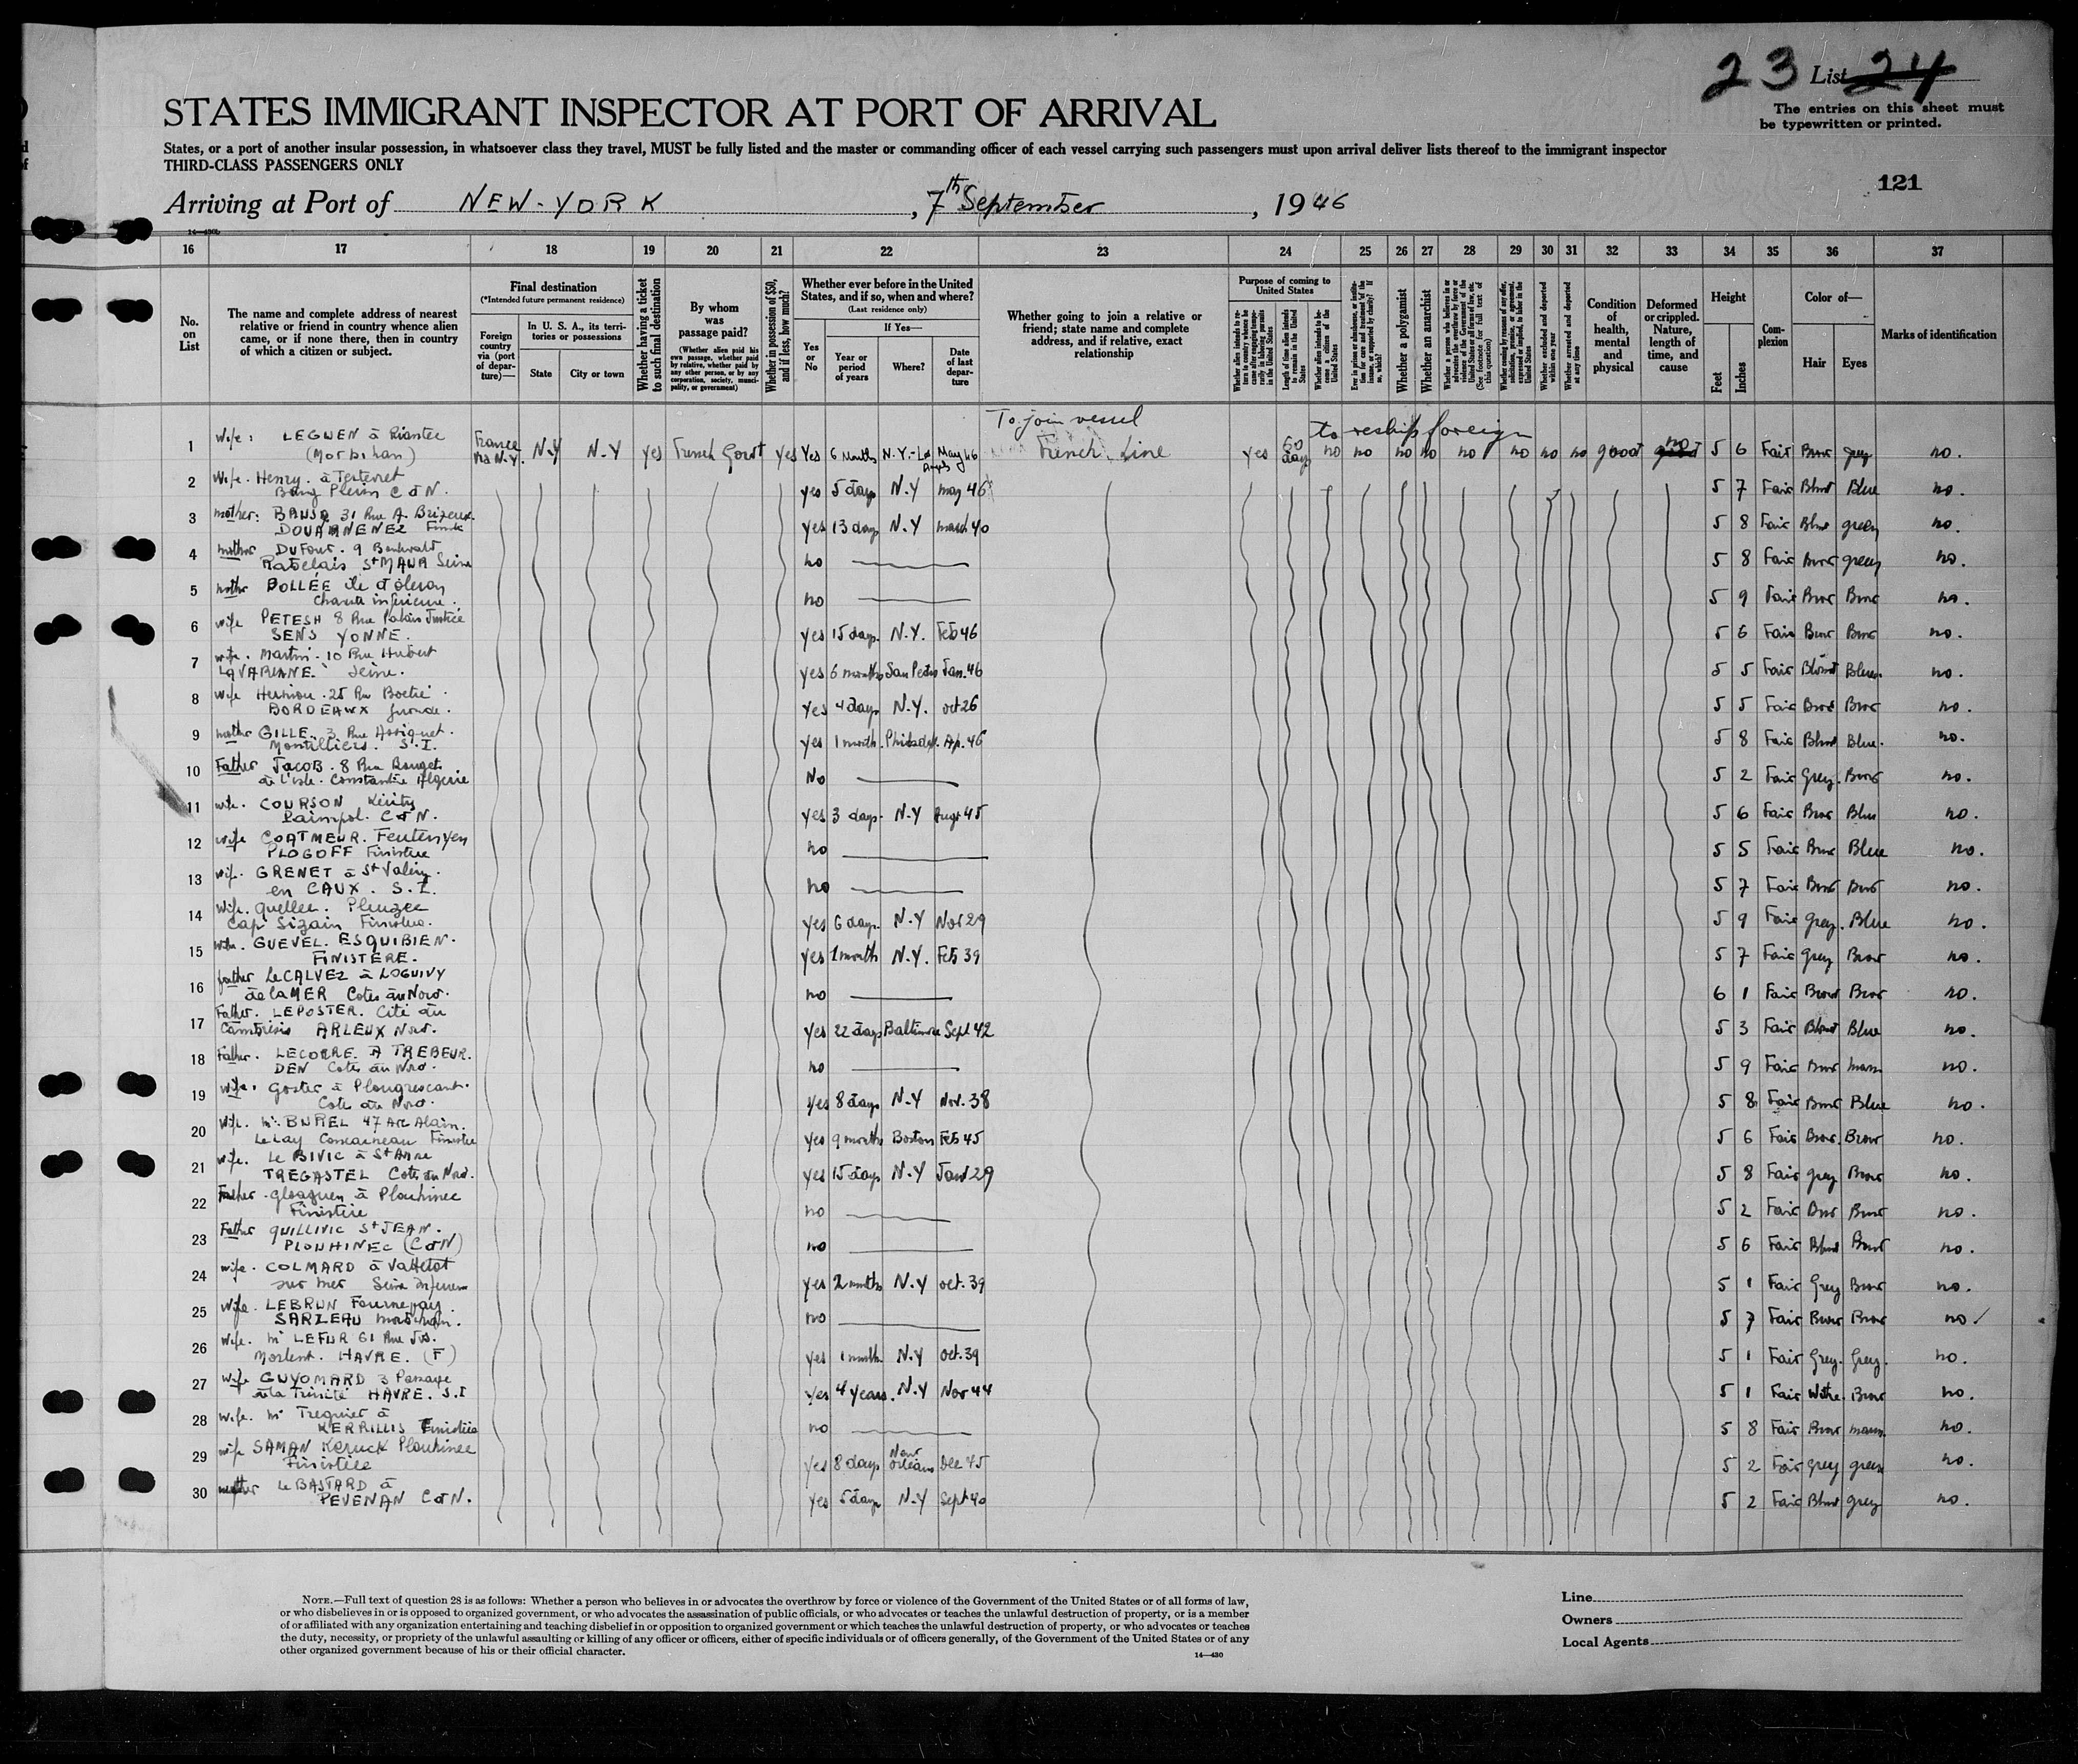 23 List 24
STATES IMMIGRANT INSPECTOR AT PORT OF ARRIVAL
The entries on this sheet must
be typewritten or printed.
States, or a port of another insular possession, in whatsoever class they travel, MUST be fully listed and the master or commanding officer of each vessel carrying such passengers must upon arrival deliver lists thereof to the immigrant inspector
THIRD-CLASS PASSENGERS ONLY
121
Arriving at Port of NEW-YORK, 7th September, 1946
14—430b
16 17 18 19 20 21 22 23 24 25 26 27 28 29 30 31 32 33 34 35 36 37
No. on List
The name and complete address of nearest relative or friend in country whence alien came, or if none there, then in country of which a citizen or subject.
Final destination
(*Intended future permanent residence)
Foreign country via (port of departure)—
In U. S. A., its territories or possessions
State
City or town
Whether having a ticket to such final destination
By whom was passage paid?
(Whether alien paid his own passage, whether paid by relative, whether paid by any other person, or by any corporation, society, municipality, or government)
Whether in possession of $50, and if less, how much?
Whether ever before in the United States, and if so, when and where?
(Last residence only)
Yes or No
If Yes—
Year or period of years
Where?
Date of last departure
Whether going to join a relative or friend; state name and complete address, and if relative, exact relationship
Purpose of coming to United States
Length of time alien intends to remain in the United States
Whether alien intends to become a citizen of the United States
Whether a polygamist
Whether an anarchist
Whether excluded and deported within one year
Whether arrested and deported at any time
Condition of health, mental and physical
Deformed or crippled. Nature, length of time, and cause
Height
Feet
Inches
Complexion
Color of—
Hair
Eyes
Marks of identification
To join vessel
to reship foreign
1 Wife: LEGUEN à Riantec
(Morbihan) France via N.Y. N.Y N.Y yes French Govt yes Yes 6 Months N.Y. May 46 French Line yes 60 days no no no no no no no no good no 5 6 Fair Brow grey no.
2 Wife. Henry. à
C d N. yes 5 days N.Y may 46 5 7 Fair Blond Blue no.
3 mother: 31 Rue A. Brizeux.
DOUARNENEZ yes 13 days N.Y march 40 5 8 Fair green no.
4 mother DuFour. 9 Boulevard
Rabelais St MAUR Seine no 5 8 Fair Brow green no.
5 mother BOLLÉE île d'oleron
no 5 9 Fair Brow Brow no.
6 wife PETESH 8 Rue Palais Justice
SENS YONNE. yes 15 days. N.Y. Feb 46 5 6 Fair Brow Brow no.
7 wife. Martin. 10 Rue Hubert
LaVARENNE. Seine. yes 6 months San Pedro Jan. 46 5 5 Fair Blond Blue. no.
8 wife 25 Rue Boetie.
BORDEAUX Gironde. yes 4 days N.Y. oct 26 5 5 Fair Brow Brow no.
9 mother GILLE. 3 Rue
Montilliers. S.I. yes 1 month. Philadel. Ap. 46 5 8 Fair Blond Blue. no.
10 Father JACOB. 8 Rue Rouget
de L'isle. Constantine Algerie No 5 2 Fair Grey. Brow no.
11 wife. COURSON Kerity
Paimpol. C d N. yes 3 days. N.Y Augt 45 5 6 Fair Brow Blue no.
12 wife COATMEUR. Feunteunyen
PLOGOFF Finistere no 5 5 Fair Brow Blue no.
13 wife. GRENET à St Valery.
en CAUX. S.I. no 5 7 Fair Brow Brow no.
14 Wife. Quellec.
Cap Sizain Finistere. yes 6 days. N.Y Nov 29 5 9 Fair grey. Blue no.
15 GUEVEL. ESQUIBIEN.
FINISTERE. yes 1 month N.Y. Feb 39 5 7 Fair Grey Brow no.
16 father LeCALVEZ à LOGUIVY
de la MER Cotes du Nord. no 6 1 Fair Brow Brow no.
17 Father. LEPOSTER. Cité du
ARLEUX Nord. yes 22 days Baltimore Sept 42 5 3 Fair Blond Blue no.
18 Father. LECORRE. A TREBEUR.
DEN Cotes du Nord. no 5 9 Fair Brow no.
19 wife: Goster à Plougrescant.
Cotes du Nord. yes 8 days N.Y Nov. 38 5 8 Fair Brow Blue no.
20 Wife. Me. BUREL 47 Alain.
Le Lay Concarneau Finistere yes 9 months Boston Feb 45 5 6 Fair Brow. Brow no.
21 wife. Le BIVIC à St Anne
TREGASTEL Cotes du Nord. yes 15 days N.Y Jan 29 5 8 Fair grey Brow no.
22 Father. Gloaguen à Plouhinec
Finistere no 5 2 Fair Brow Brow no.
23 Father QUILLIVIC St JEAN.
PLOUHINEC (C d N) no 5 6 Fair Blond Brow no.
24 wife. COLMARD à Vattetot
sur mer Seine Inferieure yes 2 months N.Y oct. 39 5 1 Fair Grey Brow no.
25 Wife. LEBRUN
SARZEAU Morbihan. no 5 7 Fair Brow Brow no
26 Wife. Me LEFUR 61 Rue
HAVRE. (F) yes 1 month N.Y Oct. 39 5 1 Fair Grey. Grey. no.
27 wife GUYOMARD 3 Passage
de la Trinité HAVRE. S.I yes 4 years. N.Y Nov 44 5 1 Fair Withe. Brow no.
28 wife. Me Treguier à
KERRILLIS Finistère no 5 8 Fair Brow no.
29 wife SAMAN Plouhinec
Finistère yes 8 days New Orleans Dec 45 5 2 Fair Grey green no.
30 mother LeBASTARD à
PEVENAN C d N. yes 5 days N-Y Sept 40 5 2 Fair Blond grey no.
NOTE.—Full text of question 28 is as follows: Whether a person who believes in or advocates the overthrow by force or violence of the Government of the United States or of all forms of law,
or who disbelieves in or is opposed to organized government, or who advocates the assassination of public officials, or who advocates or teaches the unlawful destruction of property, or is a member
of or affiliated with any organization entertaining and teaching disbelief in or opposition to organized government or which teaches the unlawful destruction of property, or who advocates or teaches
the duty, necessity, or propriety of the unlawful assaulting or killing of any officer or officers, either of specific individuals or of officers generally, of the Government of the United States or of any
other organized government because of his or their official character.
14—430
Line
Owners
Local Agents